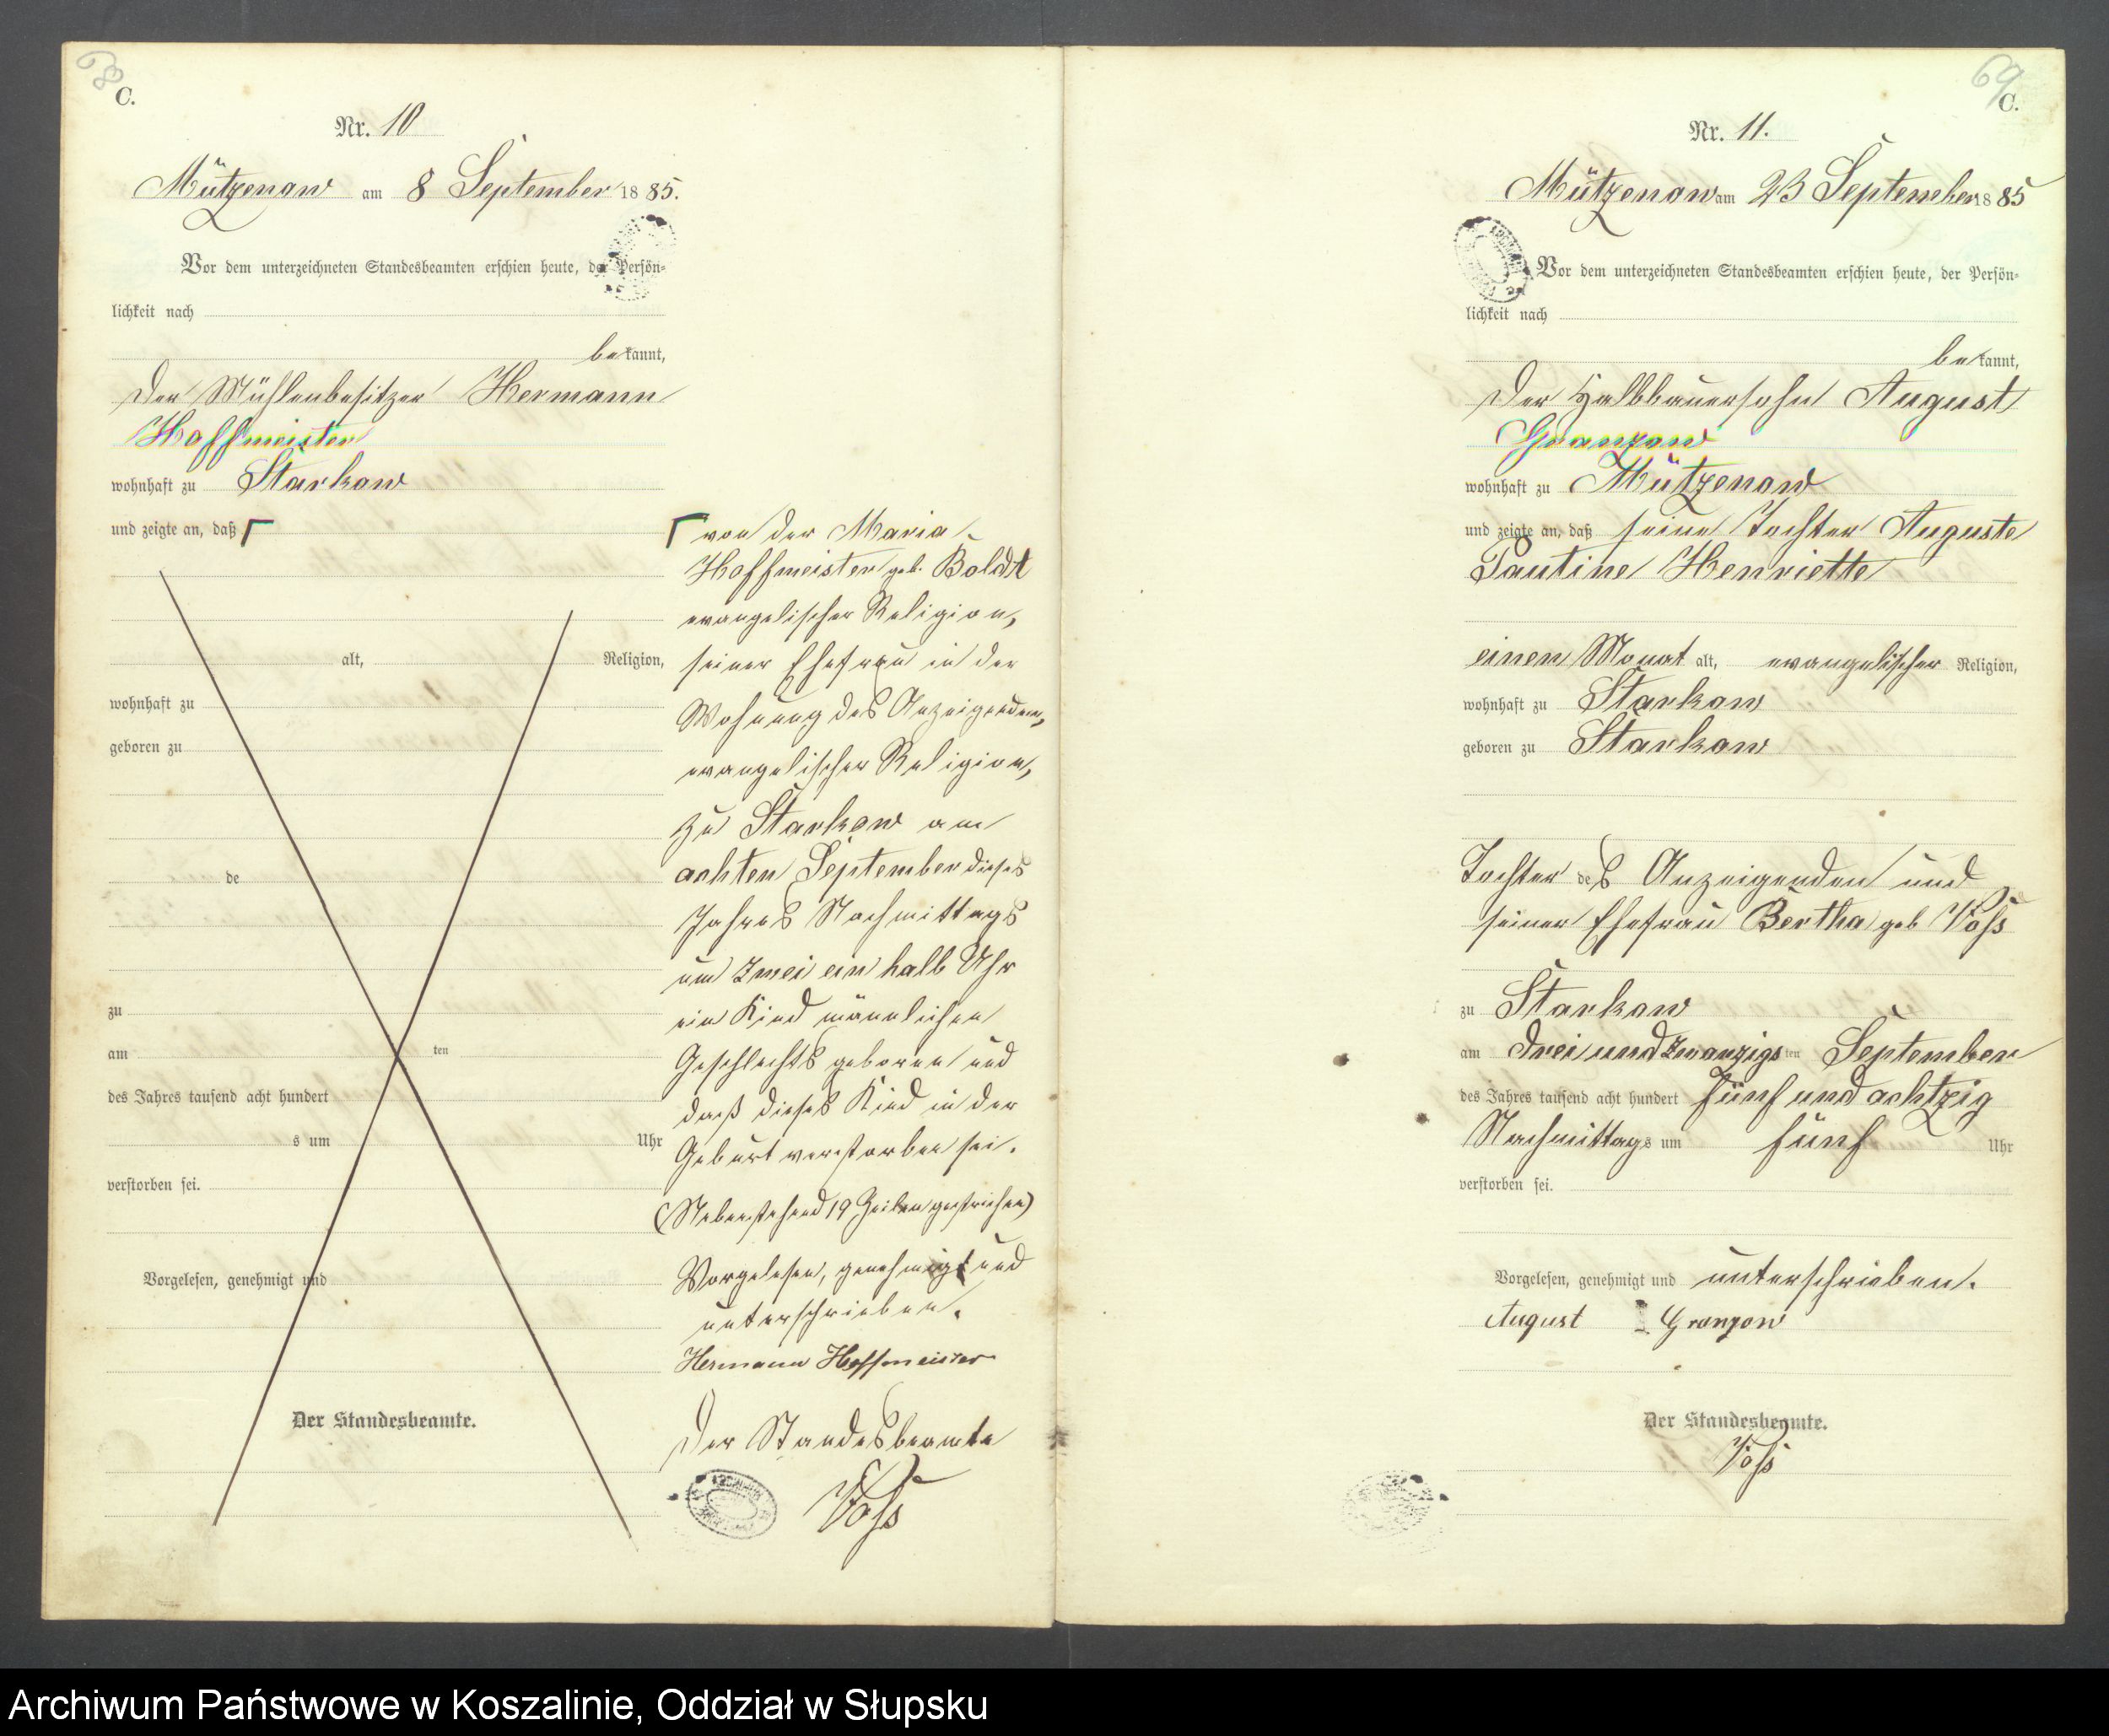 68
C.
Nr. 10
Mützenow am 8 September 1885.
Vor dem unterzeichneten Standesbeamten erschien heute, der Persön-
lichkeit nach
bekannt,
Der Mühlenbesitzer Hermann
Hoffmeister
wohnhaft zu Starkow
und zeigte an, daß
alt, Religion,
wohnhaft zu
geboren zu
de
zu
am ten
des Jahres tausend acht hundert
s um Uhr
verstorben sei.
Vorgelesen, genehmigt und
Der Standesbeamte.
von der Maria
Hoffmeister geb. Boldt
evangelischer Religion,
seiner Ehefrau in der
Wohnung des Anzeigenden,
evangelischer Religion,
zu Starkow am
achten September dieses
Jahres Nachmittags
um zwei ein halb Uhr
ein Kind männlichen
Geschlechts geboren und
daß dieses Kind in der
Geburt verstorben sei.
(Nebenstehend 19 Zeilen gestrichen)
Vorgelesen, genehmigt und
unterschrieben.
Hermann Hoffmeister
Der Standesbeamte
Voß
69
C.
Nr. 11.
Mützenow am 23 September 1885
Vor dem unterzeichneten Standesbeamten erschien heute, der Persön-
lichkeit nach
bekannt,
Der Halbbauersohn August
Granzow
wohnhaft zu Mützenow
und zeigte an, daß seine Tochter Auguste
Pautine Henriette
einen Monat alt, evangelischer Religion,
wohnhaft zu Starkow
geboren zu Starkow
Tochter des Anzeigenden und
seiner Ehefrau Bertha geb Voß
zu Starkow
am drei und zwanzigsten September
des Jahres tausend acht hundert fünf und achtzig
Nachmittags um fünf Uhr
verstorben sei.
Vorgelesen, genehmigt und unterschrieben.
August Granzow
Der Standesbeamte.
Voß
Archiwum Państwowe w Koszalinie, Oddział w Słupsku